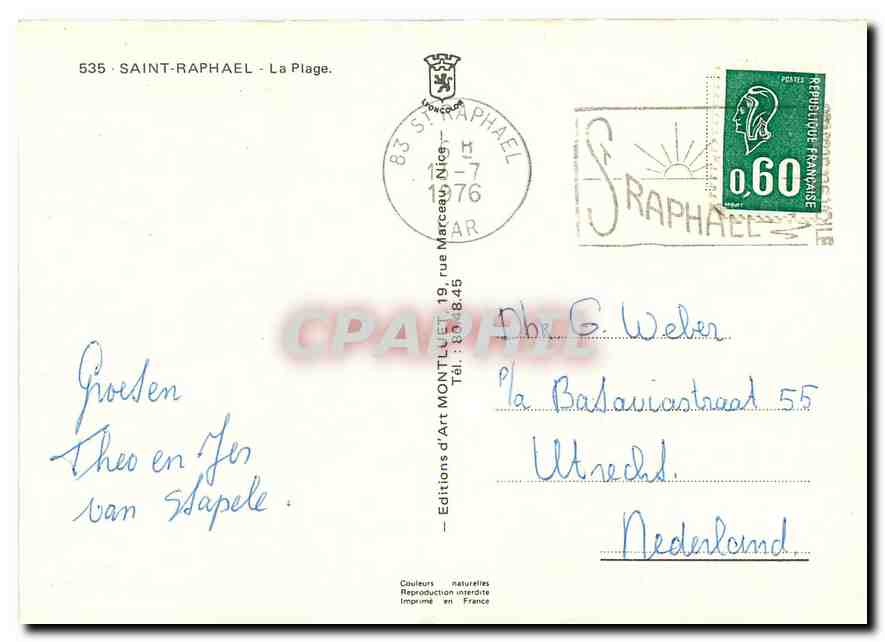 535 · SAINT-RAPHAEL - La Plage.
LYONCOLOR
83 ST RAPHAEL
-7
1976
VAR
ST RAPHAEL
POSTES
REPUBLIQUE FRANÇAISE
0,60
— Editions d'Art MONTLUET, 19, rue Marceau, Nice —
Tél. : 80.48.45
CPAPHIL
Groeten
Theo en
van Stapele.
Dhr. G. Weber
p/a Bataviastraat 55
Utrecht.
Nederland.
Couleurs naturelles
Reproduction interdite
Imprimé en France